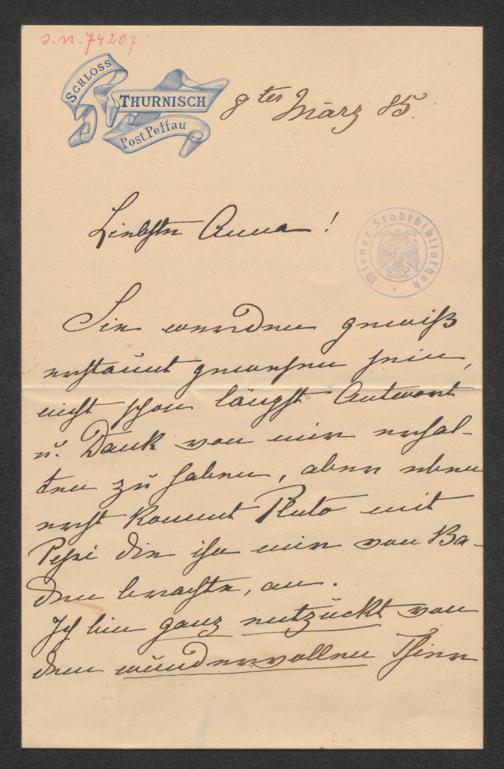 J.N. 74207
SCHLOSS
THURNISCH
Post Pettau
9ten März 85.
Wiener Stadtbibliothek
Liebste Anna!
Sie werden gewiß
erstaunt gewesen sein,
nicht schon längst Antwort
u. Dank von mir erhal-
ten zu haben, aber eben
erst kommt Pluto mit
Pepi die ihn mir von Ba-
den brachte, an.
Ich bin ganz entzückt von
dem wundervollen Thier